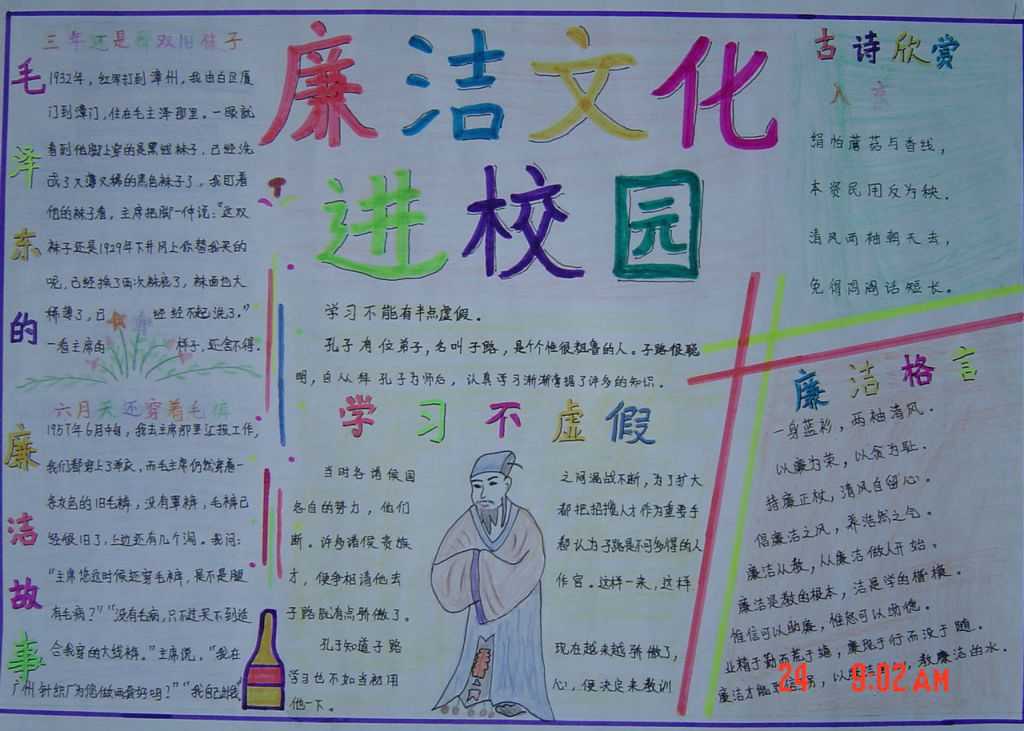 廉洁文化
进校园
毛泽东的廉洁故事
三年还是那双旧袜子
1932年，红军打到漳州，我由白区厦
门到漳门，住在毛主泽那里。一眼就
看到他脚上穿的是黑线袜子，已经洗
成了又薄又稀的黑色袜子了，我盯着
他的袜子看，主席把脚一伸说：“这双
袜子还是1929年下井冈上你替我买的
呢，已经换了两次袜底了，袜面也大
稀薄了，日 经经不起洗了。”
一看主席的 样子，还舍不得.
六月天还穿着毛裤
1957年6月中旬，我去主席那里汇报工作，
我们都穿上了单衣，而毛主席仍然穿着一
条灰色的旧毛裤，没有罩裤，毛裤已
经很旧了，上边还有几个洞。我问：
“主席您这时候还穿毛裤，是不是腿
有毛病？”“没有毛病，只不过买不到适
合我穿的大线裤。”主席说，“我在
广州针织厂为您做两套好吗？”“我自己
学习不能有半点虚假。
孔子有位弟子，名叫子路，是个个性很粗鲁的人。子路很聪
明，自从拜孔子为师后，认真学习渐渐掌握了许多的知识。
学习不虚假
当时各诸侯国 之间混战不断，为了扩大
各自的努力，他们 都把招揽人才作为重要手
断。许多诸侯贵族 都认为子路是不可多得的人
才，便争相请他去 作官。这样一来，这样
子路就有点骄傲了。
孔子知道子路 现在越来越骄傲了，
学习也不如当初用 心，便决定来教训
他一下。
古诗欣赏
入京
绢帕蘑菇与香线，
本资民用反为秧．
清风两袖朝天去，
免得闾阎话短长。
廉洁格言
一身蓝衫，两袖清风．
以廉为荣，以贪为耻．
持廉正杖，清风自留心．
倡廉洁之风，养浩然之气．
廉洁从教，从廉洁做人开始．
廉洁是教的根本，洁是学的楷模．
惟信可以助廉，惟恕可以助德．
业精于勤而荒于嬉，廉现于行而没于随．
廉洁才能 教廉洁的水．
24 9:02 AM